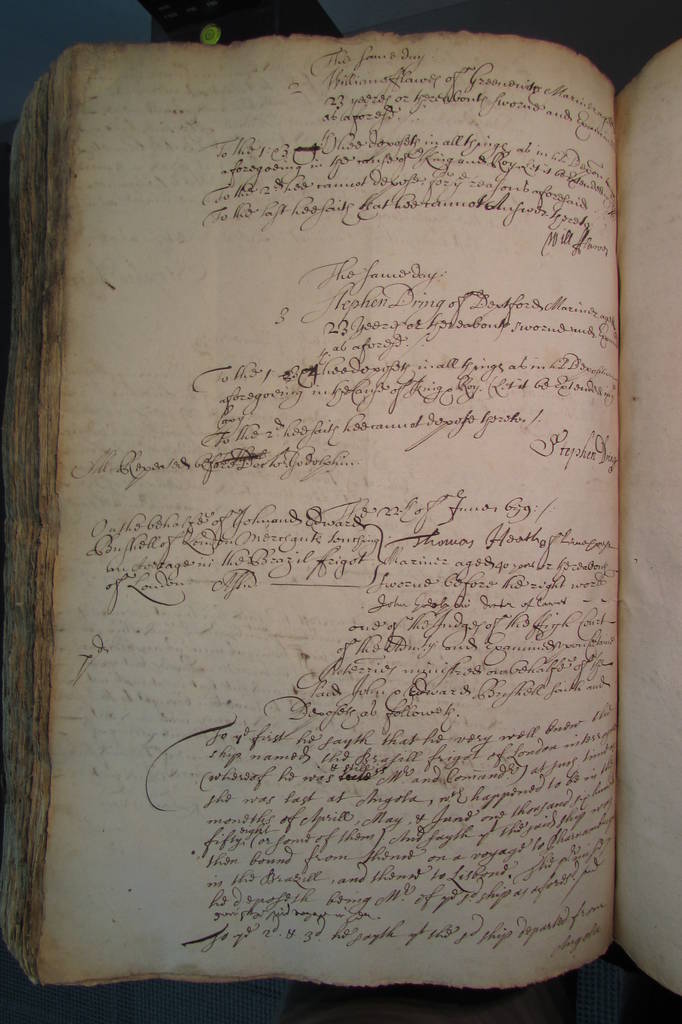 The same day
2
William Flawes of Greenewch Mariner aged
23 yeeres or thereabouts sworne and Examined
as aforesd.
To the 1. & 3 hee deposeth in all things as in his Deposicon
aforegoeing in the cause of King and Roy. Let it be Extended
To the 2d hee cannot depose for ye reasons aforesaid
To the last hee saith that hee cannot Answer thereto
Will Flawes
The same day:
3
Stephen Dring of Deptford Mariner aged
23 Yeeres or thereabouts sworne and
as aforesd.
To the 1 hee deposeth in all things as in his Deposicon
aforegoeing in the Cause of King & Roy. Let it be Extended
To the 2d. hee saith hee cannot depose thereto /.
Stephen Dring
Repeated before Doctor Godolphin.
The of June 1659:/.
On the behalfe of John and Edward
Bushell of London Merchants touching
an Average in the Brazil frigot
of London
Thomas Heath of Limehouse
Mariner aged 40 yeares or thereabouts
sworne before the right worll
John Godolphin doctor of lawes
one of the Judges of the high Court
of the Admlty and Examined upon certaine
Interries ministred on behalfe of the
said John & Edward Bushell saith and
Deposeth as followeth.
To ye first he sayth that he very well knew the
ship named the Brazill frigot of London interrate
(whereof he was Mr and Comander) at such time as
she was last at Angola, wch happened to be in the
moneths of Aprill, May, & June one thousand six hundred
fifty eight (or some of them) And sayth yt the said ship was
then bound from thence on a voyage to Pharnambuco
in the Brazill, and thence to Lisbone. The premisses
he deposeth being Mr of ye sd ship as aforesd.
To ye 2d. & 3d. he sayth yt the sd ship departed from
Angola